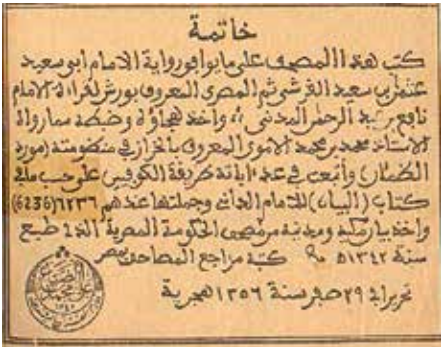 خاتمة
كتب هذا المصحف على ما يوافق رواية الامام ابى سعيد
عثمان بن سعيد القرشى ثم المصرى المعروف بورش لقراءة الامام
نافع بن عبد الرحمن المدنى واخذ هجاؤه وضبطه مما رواه
الاستاذ محمد بن محمد الاموى المعروف بالخراز فى منظومته (مورد
الظمآن) واتبعت فى عد آياته طريقة الكوفيين على حسب ما فى
كتاب (البيان) للامام الدانى وجملتها عندهم ٦٢٣٦ (6236)
واخذ بيان مكيه ومدنيه من مصحف الحكومة المصرية الذى طبع
سنة ١٣٤٢ه كتبه مراجع المصاحف بمصر
تحريرا فى ٢٩ صفر سنة ١٣٥٦ هجرية